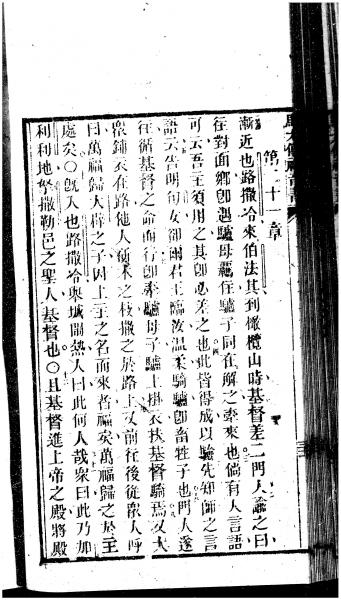 第二十一章
漸近也路撒冷來伯法其到橄欖山時基督差二門人諭之曰
往對面鄉卽遇驢母羈住驢子同在解之牽來也倘有人言語
可云吾主須用之其卽必差之也此皆得成以驗先知師之言
語云告明旬女卻爾君王臨汝溫柔騎驢卽畜牲子也門人遂
往循基督之命而行卽牽驢母子驢上掛衣扶基督騎焉又大
衆鋪衣在路他人斫木之枝撒之於路上又前行後從衆人呼
曰萬福歸大辟之子因上主之名而來者福矣萬福歸之於至
處矣〇旣入也路撒冷與城鬧熱人曰此何人哉衆曰此乃加
利利地拏撒勒邑之聖人基督也〇且基督進上帝之殿將殿